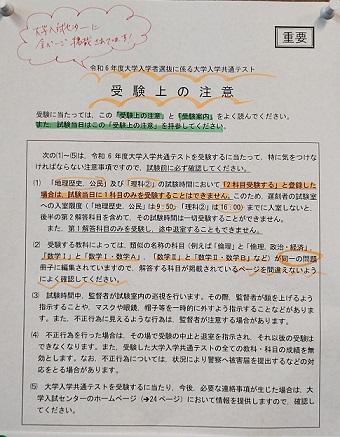 大学入試センターに
全ページ掲載されています!
重要
令和6年度大学入学者選抜に係る大学入学共通テスト
受験上の注意
受験に当たっては、この「受験上の注意」と「受験案内」をよく読んでください。
また、試験当日はこの「受験上の注意」を持参してください。
次の(1)~(5)は、令和6年度大学入学共通テストを受験するに当たって、特に気をつけな
ければならない注意事項ですので、試験前に必ず確認してください。
(1) 「地理歴史、公民」及び「理科②」の試験時間において「2科目受験する」と登録した
場合は、試験当日に1科目のみを受験することはできません。このため、遅刻者の試験室
への入室限度(「地理歴史、公民」は9:50、「理科②」は16:00)までに入室しないと、
後半の第2解答科目を含めて、その試験時間は一切受験することができません。
また、第1解答科目のみを受験し、途中退室することもできません。
(2) 受験する教科によっては、類似の名称の科目(例えば「倫理」と「倫理、政治・経済」、
「数学Ⅰ」と「数学Ⅰ・数学A」、「数学Ⅱ」と「数学Ⅱ・数学B」など)が同一の問題
冊子に編集されていますので、解答する科目が掲載されているページを間違えないよう
によく確認してください。
(3) 試験時間中、監督者が試験室内の巡視を行います。その際、監督者が顔を上げるよう
指示することや、マスクや眼鏡、帽子等を一時的に外すよう指示することなどがありま
す。また、不正行為に見えるような行為は、監督者が注意する場合があります。
(4) 不正行為を行った場合は、その場で受験の中止と退室を指示され、それ以後の受験は
できなくなります。また、受験した大学入学共通テストの全ての教科・科目の成績を無
効とします。なお、不正行為については、状況により警察へ被害届を提出するなどの対
応をとる場合があります。
(5) 大学入学共通テストを受験するに当たり、今後、必要な連絡事項が生じた場合は、大
学入試センターのホームページ(➔24ページ)において情報を提供しますので、確認し
てください。